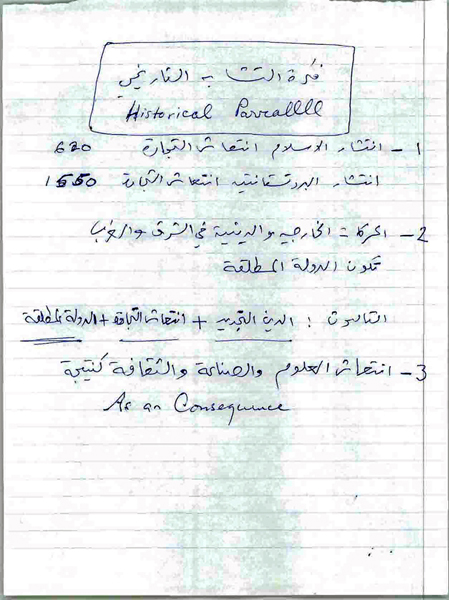 فكرة التشابه التاريخي
Historical Parrallll
1 - انتشار الاسلام انتعاش التجارة 620
انتشار البروتستانتيه انتعاش التجارة 1550
2 - الحركات الخارجيه والدينية في الشرق والغرب
تكون الدولة المطلقة
الثالوث : الدين الجديد + انتعاش التجارة + الدولة المطلقة
3 - انتعاش العلوم والصناعة والثقافة كنتيجة
As an Consequence